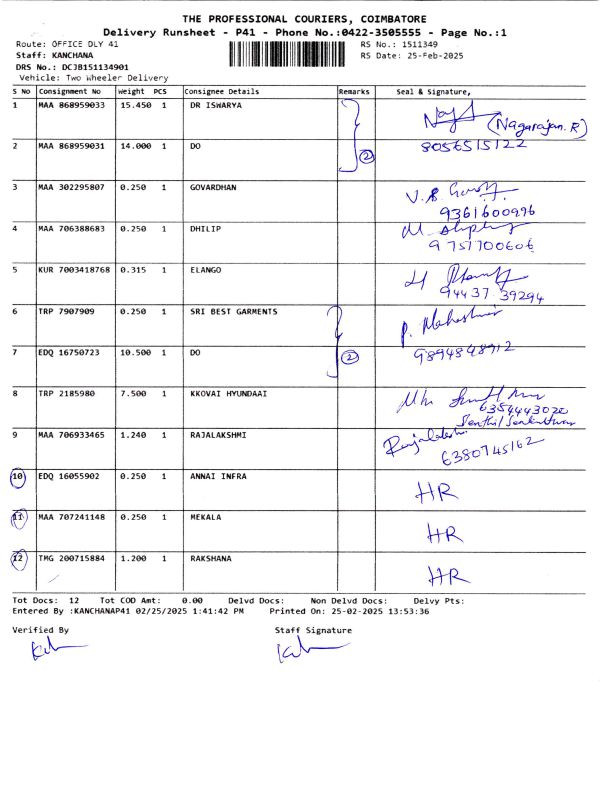 THE PROFESSIONAL COURIERS, COIMBATORE
Delivery Runsheet - P41 - Phone No.:0422-3505555 - Page No.:1
Route: OFFICE DLY 41 RS No.: 1511349
Staff: KANCHANA RS Date: 25-Feb-2025
DRS No.: DCJB151134901
Vehicle: Two Wheeler Delivery
S No Consignment No Weight PCS Consignee Details Remarks Seal & Signature,
1 MAA 868959033 15.450 1 DR ISWARYA (Nagarajan.R)
2 MAA 868959031 14.000 1 DO 2 8056515122
3 MAA 302295807 0.250 1 GOVARDHAN
9361600996
4 MAA 706388683 0.250 1 DHILIP
9757700606
5 KUR 7003418768 0.315 1 ELANGO
94437 39294
6 TRP 7907909 0.250 1 SRI BEST GARMENTS
7 EDQ 16750723 10.500 1 DO 2 9894848912
8 TRP 2185980 7.500 1 KKOVAI HYUNDAAI
6354443020
9 MAA 706933465 1.240 1 RAJALAKSHMI
6380745162
10 EDQ 16055902 0.250 1 ANNAI INFRA HR
11 MAA 707241148 0.250 1 MEKALA HR
12 TMG 200715884 1.200 1 RAKSHANA HR
Tot Docs: 12 Tot COD Amt: 0.00 Delvd Docs: Non Delvd Docs: Delvy Pts:
Entered By :KANCHANAP41 02/25/2025 1:41:42 PM Printed On: 25-02-2025 13:53:36
Verified By Staff Signature